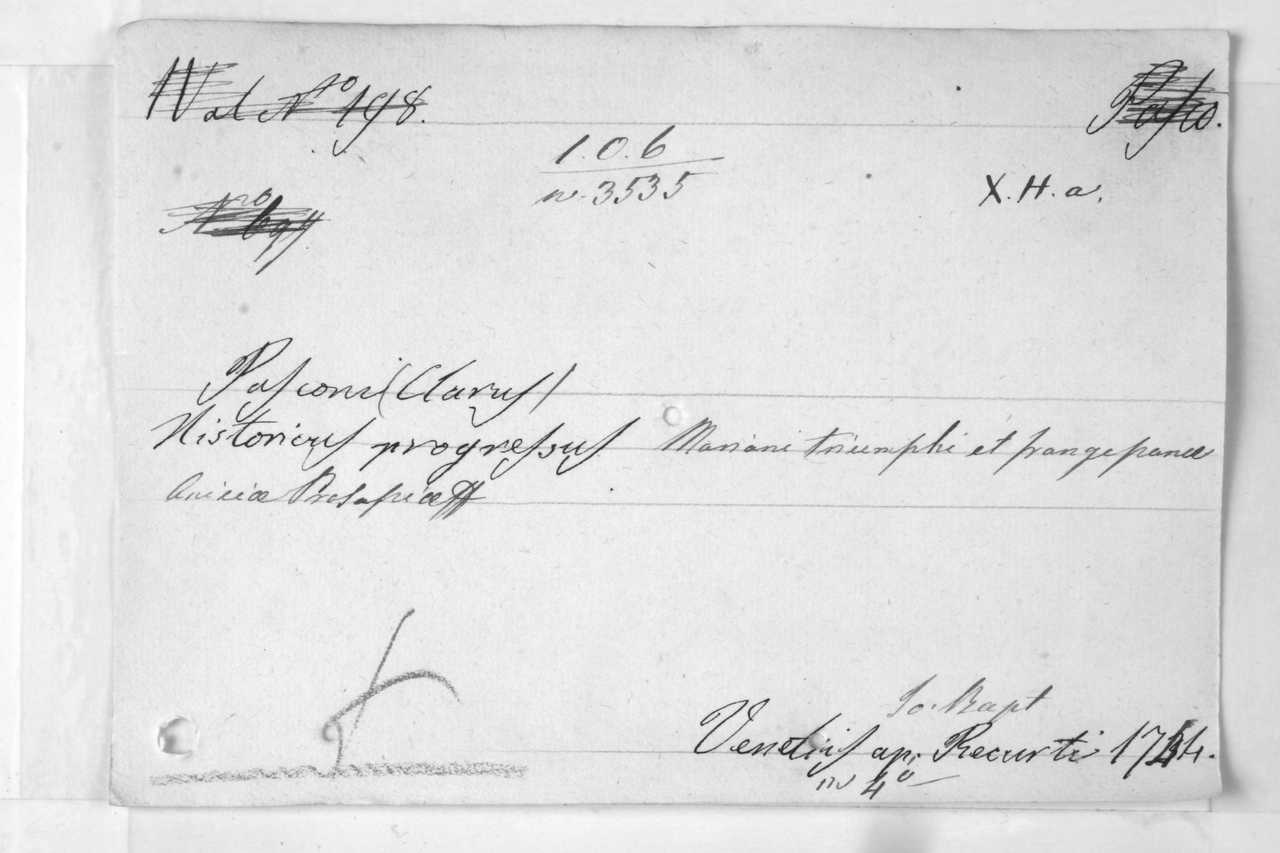 Wal No 198.
1.0.6
n. 3535
X. H. a.
No 697
Pasconi (Clarus)
Historicus progressus Mariani triumphi et frangepanae
Aniciae Prosapiae
Jo. Bapt
Venetiis ap. Recurti 1744.
in 4o